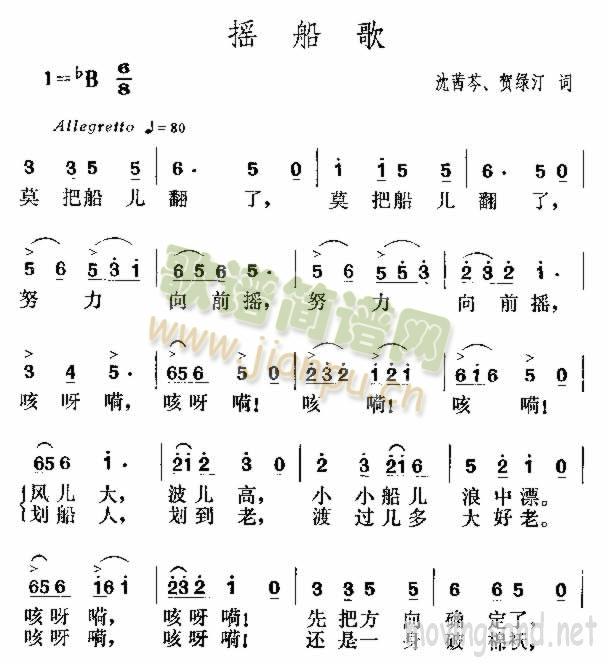 摇船歌
1=♭B 6/8 沈茜芩、贺绿汀 词
Allegretto ♩=80
3 3 5 5 | 6· 5 0 | i i i 5 5 | 6· 5 0 |
莫把船儿翻了，莫把船儿翻了，
5 6 5 5 3 i | 6 5 6 5· | 5 6 5 5 3 | 2 3 2 i· |
努力向前摇，努力向前摇，
3 4 5· | 6 5 6 5 0 | 2 3 2 i 2 i | 6 i 6 5 0 |
咳呀嗬，咳呀嗬！咳嗬！咳嗬！
6 5 6 i· | 2 i 2 3 0 | 2 3 2 i 6 | 5 2 i 0 |
风儿大，波儿高，小小船儿浪中漂。
划船人，划到老，渡过几多大好老。
6 5 6 5 i 6 i | 2 3 2 i 0 | 3 3 5 5 | 6 5 0
咳呀嗬，咳呀嗬！先把方向确定了，
咳呀嗬，咳呀嗬！还是一身破棉袄，
歌谱简谱网
www.jianpu.cn